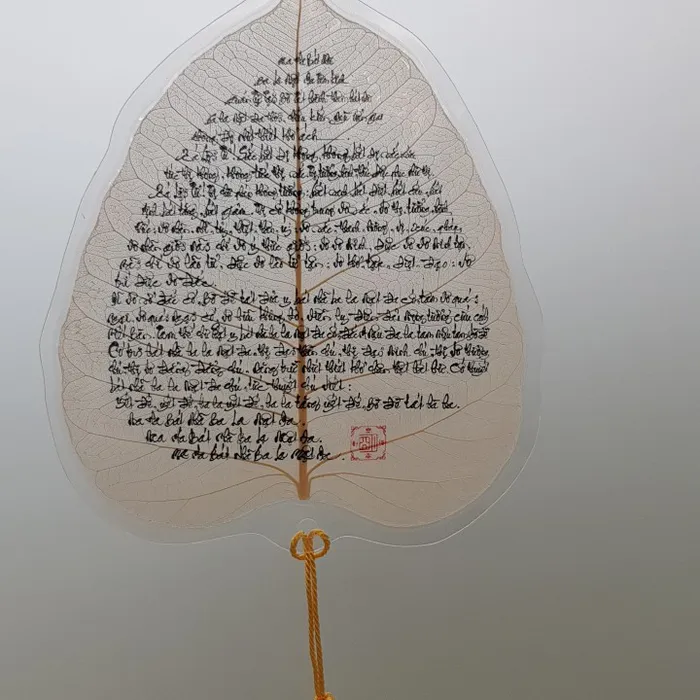 Ma ha bát nhã
ba la mật đa tâm kinh
Quán tự tại bồ tát hành thâm bát nhã
ba la mật đa thời, chiếu kiến ngũ uẩn giai
không, độ nhất thiết khổ ách
Xá Lợi Tử! Sắc bất dị không, không bất dị sắc, sắc
tức thị không, không tức thị sắc, thọ tưởng hành thức diệc phục như thị.
Xá Lợi Tử! thị chư pháp không tướng, bất sanh bất diệt, bất cấu, bất
tịnh bất tăng, bất giảm. Thị cố không trung vô sắc, vô thọ, tưởng, hành,
thức; vô nhãn, nhĩ, tỷ, thiệt, thân, ý; vô sắc, thanh, hương, vị, xúc, pháp;
vô nhãn giới, nãi chí vô ý thức giới; vô vô minh, diệc vô vô minh tận,
nãi chí vô lão tử, diệc vô lão tử tận; vô khổ, tập, diệt, đạo; vô
trí diệc vô đắc.
Dĩ vô sở đắc cố, bồ đề tát đỏa y bát nhã ba la mật đa cố, tâm vô quái
ngại, vô quái ngại cố, vô hữu khủng bố, viễn ly điên đảo mộng tưởng, cứu cánh
Niết bàn. Tam thế chư Phật y bát nhã ba la mật đa cố, đắc A nậu đa la tam miệu tam bồ đề
Cố tri bát nhã ba la mật đa, thị đại thần chú, thị đại minh chú, thị vô thượng
chú, thị vô đẳng đẳng chú, năng trừ nhất thiết khổ chân thật bất hư. Cố thuyết
bát nhã ba la mật đa chú, tức thuyết chú viết:
Yết đế, yết đế, ba la yết đế, ba la tăng yết đế, bồ đề tát bà ha.
Ma ha Bát Nhã Ba La Mật Đa.
Ma ha Bát nhã ba la Mật Đa.
Ma ha Bát Nhã Ba la Mật Đa.